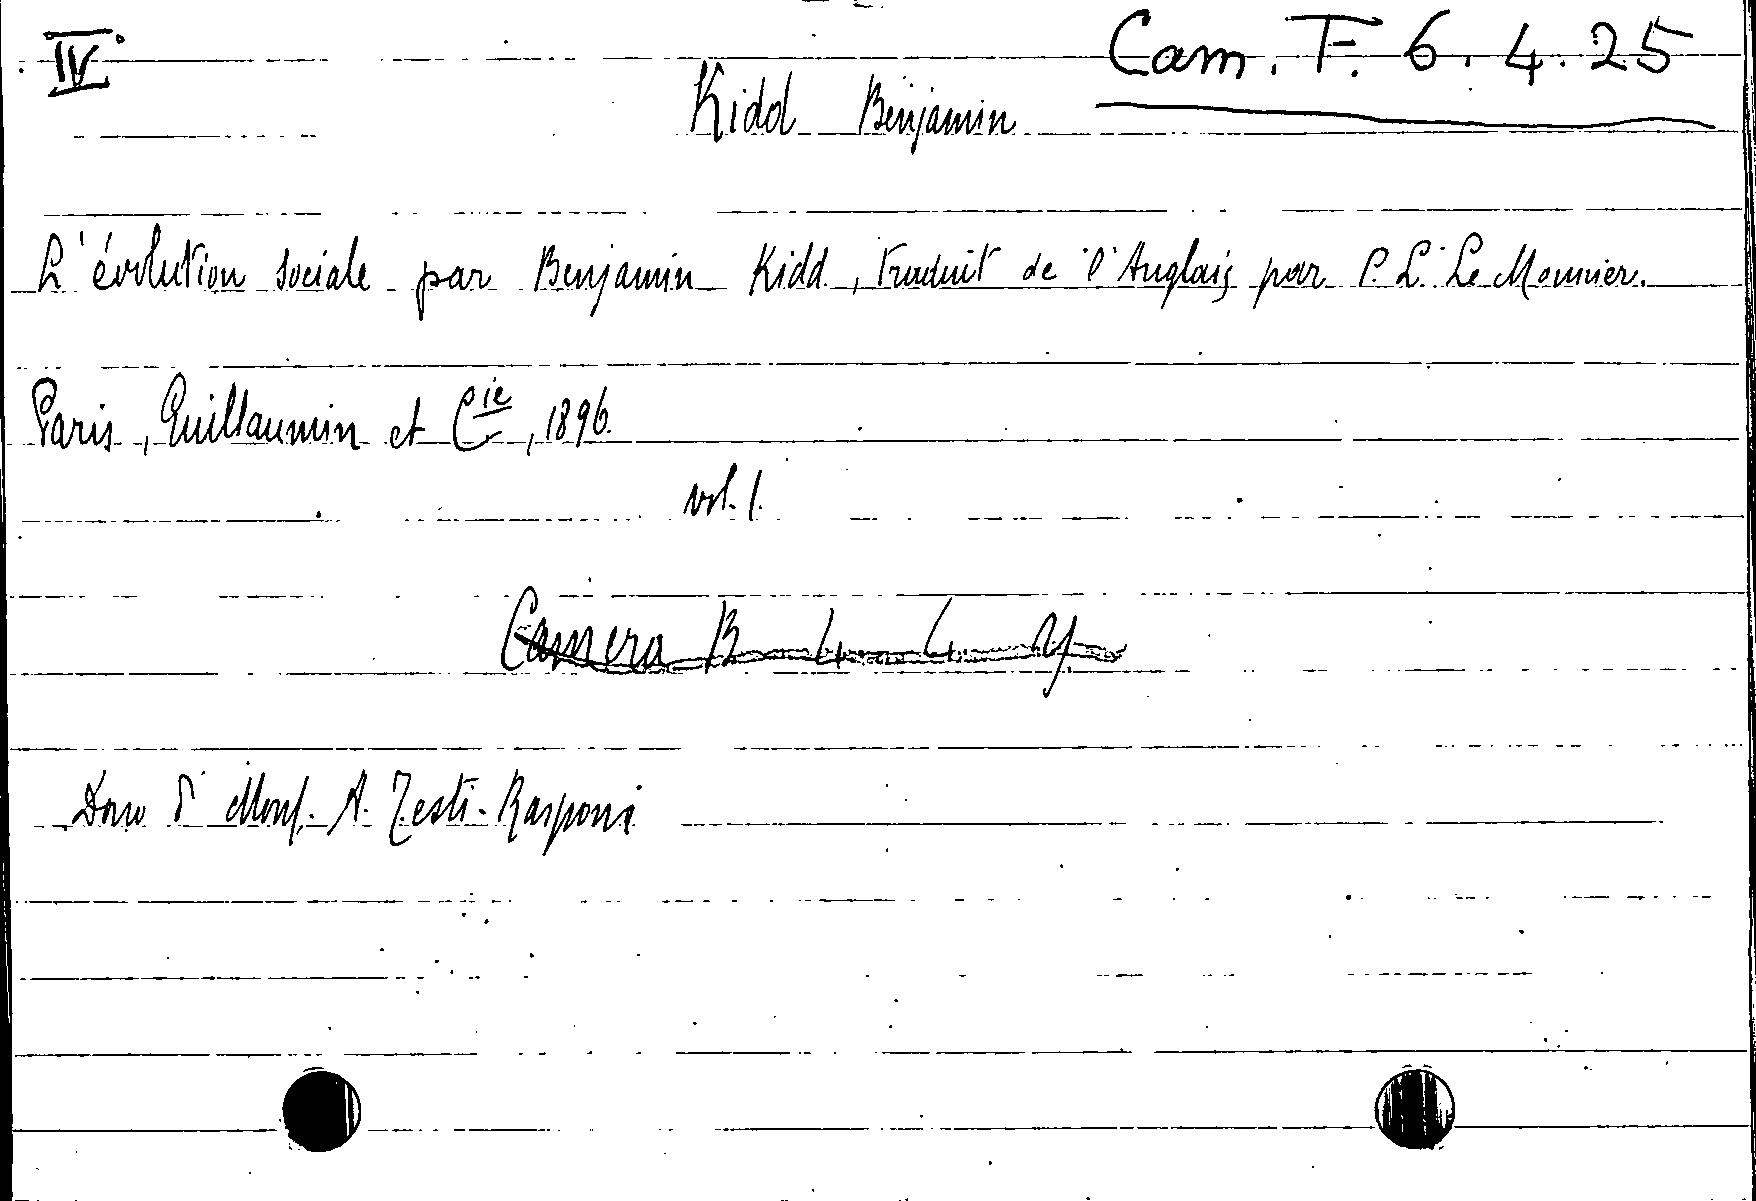 IV.
Cam. F. 6. 4. 25
Kidd Benjamin
L'évolution sociale par Benjamin Kidd, traduit de l'Anglais par P. L. Le Monnier.
Paris, Guillaumin et Cie, 1896.
vol. 1.
Camera B 4 4
Dono Mons. A. Testi-Rasponi